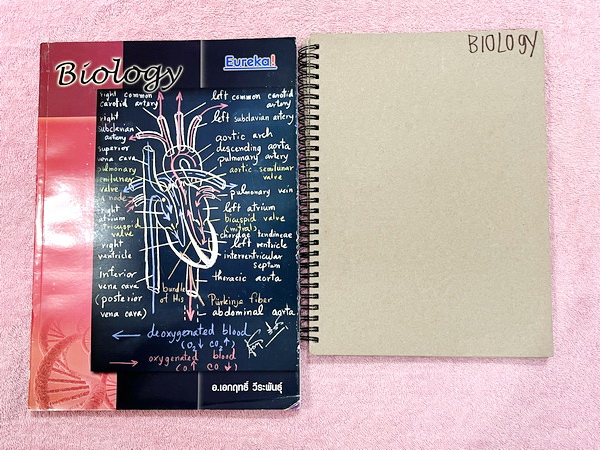 Biology
Eureka!
right common
carotid artery
right
subclavian
artery
superior
vena cava
pulmonary
semilunar
valve
node
right
atrium
tricuspid
valve
right
ventricle
inferior
vena cava
(posterior
vena cava)
left common carotid
artery
left subclavian artery
aortic arch
descending aorta
pulmonary artery
aortic semilunar
valve
pulmonary vein
left atrium
bicuspid valve
(mitral)
chordae tendineae
left ventricle
interventricular
septum
thoracic aorta
bundle
of His
Purkinje fiber
abdominal aorta
deoxygenated blood
(O₂↓ CO₂↑)
oxygenated blood
(O₂↑ CO₂↓)
อ.เอกฤทธิ์ วีระพันธุ์
BIOLOGY